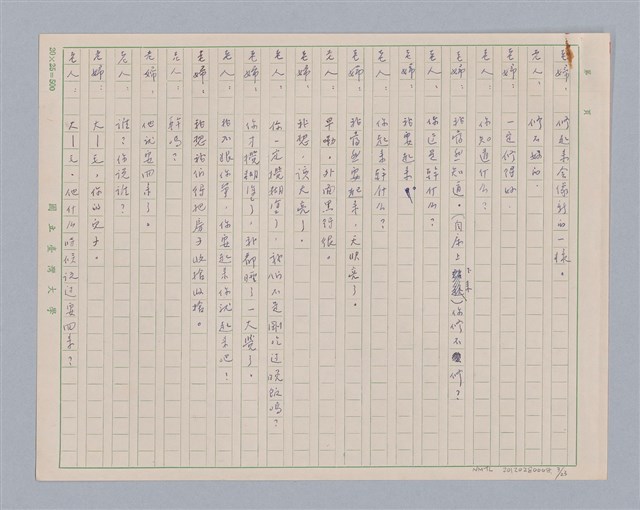 老婦：修起來會像新的一樣。
老人：修不好的。
老婦：一定修得好。
老人：你知道什么？
老婦：我當然知道。（自床上下來）你修不修？
老人：你這是幹什么？
老婦：我要起來。
老人：你起來幹什么？
老婦：我當然要起來，天快亮了。
老人：早嘞，外面黑得很。
老婦：我想，該天亮了。
老人：你一定攪糊塗了，我們不是剛吃過晚飯嗎？
老婦：你才攪糊塗了，我都睡了一大覺了。
老人：我不跟你爭，你要起來你就起來吧！
老婦：我想我們得把房子收拾收拾。
老人：幹嗎？
老婦：他就要回來了。
老人：誰？你說誰？
老婦：大—毛，你的兒子。
老人：大—毛，他什么時候說過要回來？
第 頁
20×25=500
國立臺灣大學